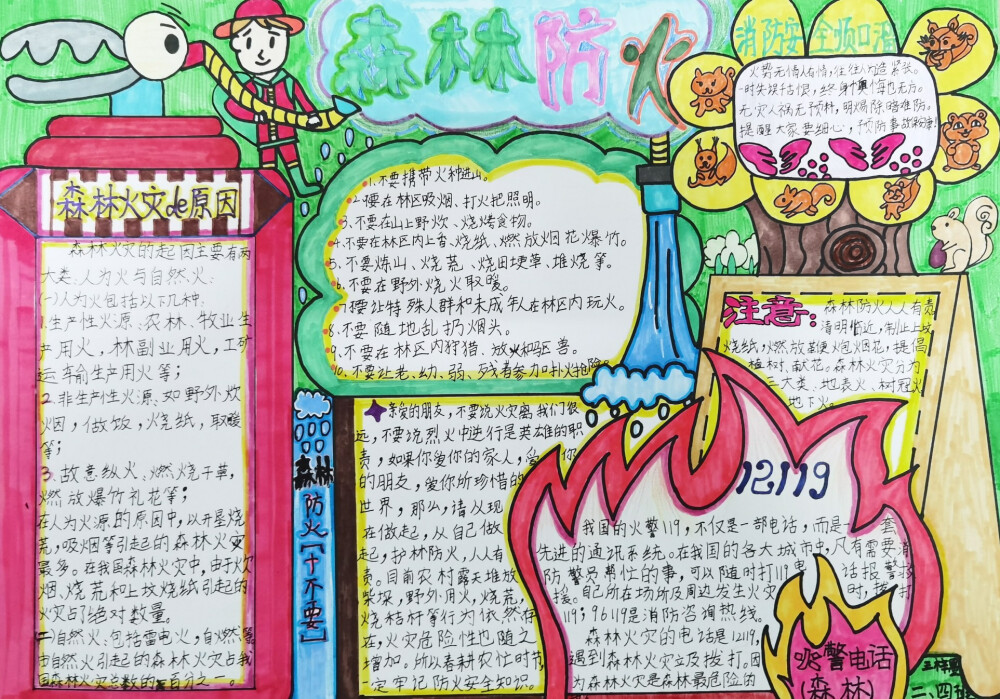 森林防火
消防安全顺口溜
火势无情人有情,往往人为造紧张。
一时失误招恨,终身悔也无方。
无灾人祸无预料,明火易除暗难防。
提醒大家要细心,预防事故
森林火灾de原因
森林火灾的起因主要有两
大类:人为火与自然火:
(一)人为火包括以下几种:
1.生产性火源:农林、牧业生
产用火,林副业用火,工矿
运输生产用火等;
2.非生产性火源:如野外炊
烟,做饭,烧纸,取暖
等;
3.故意纵火、燃烧干草,
燃放爆竹礼花等;
在人为火源的原因中,以开垦烧
荒,吸烟等引起的森林火灾
最多。在我国森林火灾中,由于火
烟、烧荒和上坟烧纸引起的
火灾占了绝对数量。
二)自然火、包括雷电火,自燃等
由自然火引起的森林火灾占我
国森林火灾总数的百分之一。
1.不要携带火种进山。
2.不要在林区吸烟、打火把照明。
3.不要在山上野炊、烧烤食物。
4.不要在林区内上香、烧纸、燃放烟花爆竹。
5.不要炼山、烧荒、烧田埂草、堆烧等。
6.不要在野外烧火取暖。
7.不要让特殊人群和未成年人在林区内玩火。
8.不要随地乱扔烟头。
9.不要在林区内狩猎、放火驱兽。
10.不要让老、幼、弱、残者参加扑火抢险。
森林防火[十不要]
亲爱的朋友,不要说火灾离我们很
远,不要说烈火中逆行是英雄的职
责,如果你爱你的家人,爱你
的朋友,爱你所珍惜的
世界,那么,请从现
在做起,从自己做
起,护林防火,人人有
责。目前农村露天堆放
柴垛,野外用火,烧荒,
烧秸秆等行为依然存
在,火灾危险性也随之
增加。所以春耕农忙时节
一定牢记防火安全知识。
注意:
森林防火人人有责
清明临近,制止上坟
烧纸,燃放鞭炮烟花,提倡
植树、献花。森林火灾分为
三大类:地表火、树冠火
地下火。
12119
我国的火警119,不仅是一部电话,而是一套
先进的通讯系统。在我国的各大城市中,凡有需要消
防警员帮忙的事,可以随时打119电话报警求
援。自己所在场所及周边发生火灾时,拨打
119;96119是消防咨询热线。
森林火灾的电话是12119,
遇到森林火灾立及拨打。因
为森林火灾是森林最危险的
火警电话
(森林)